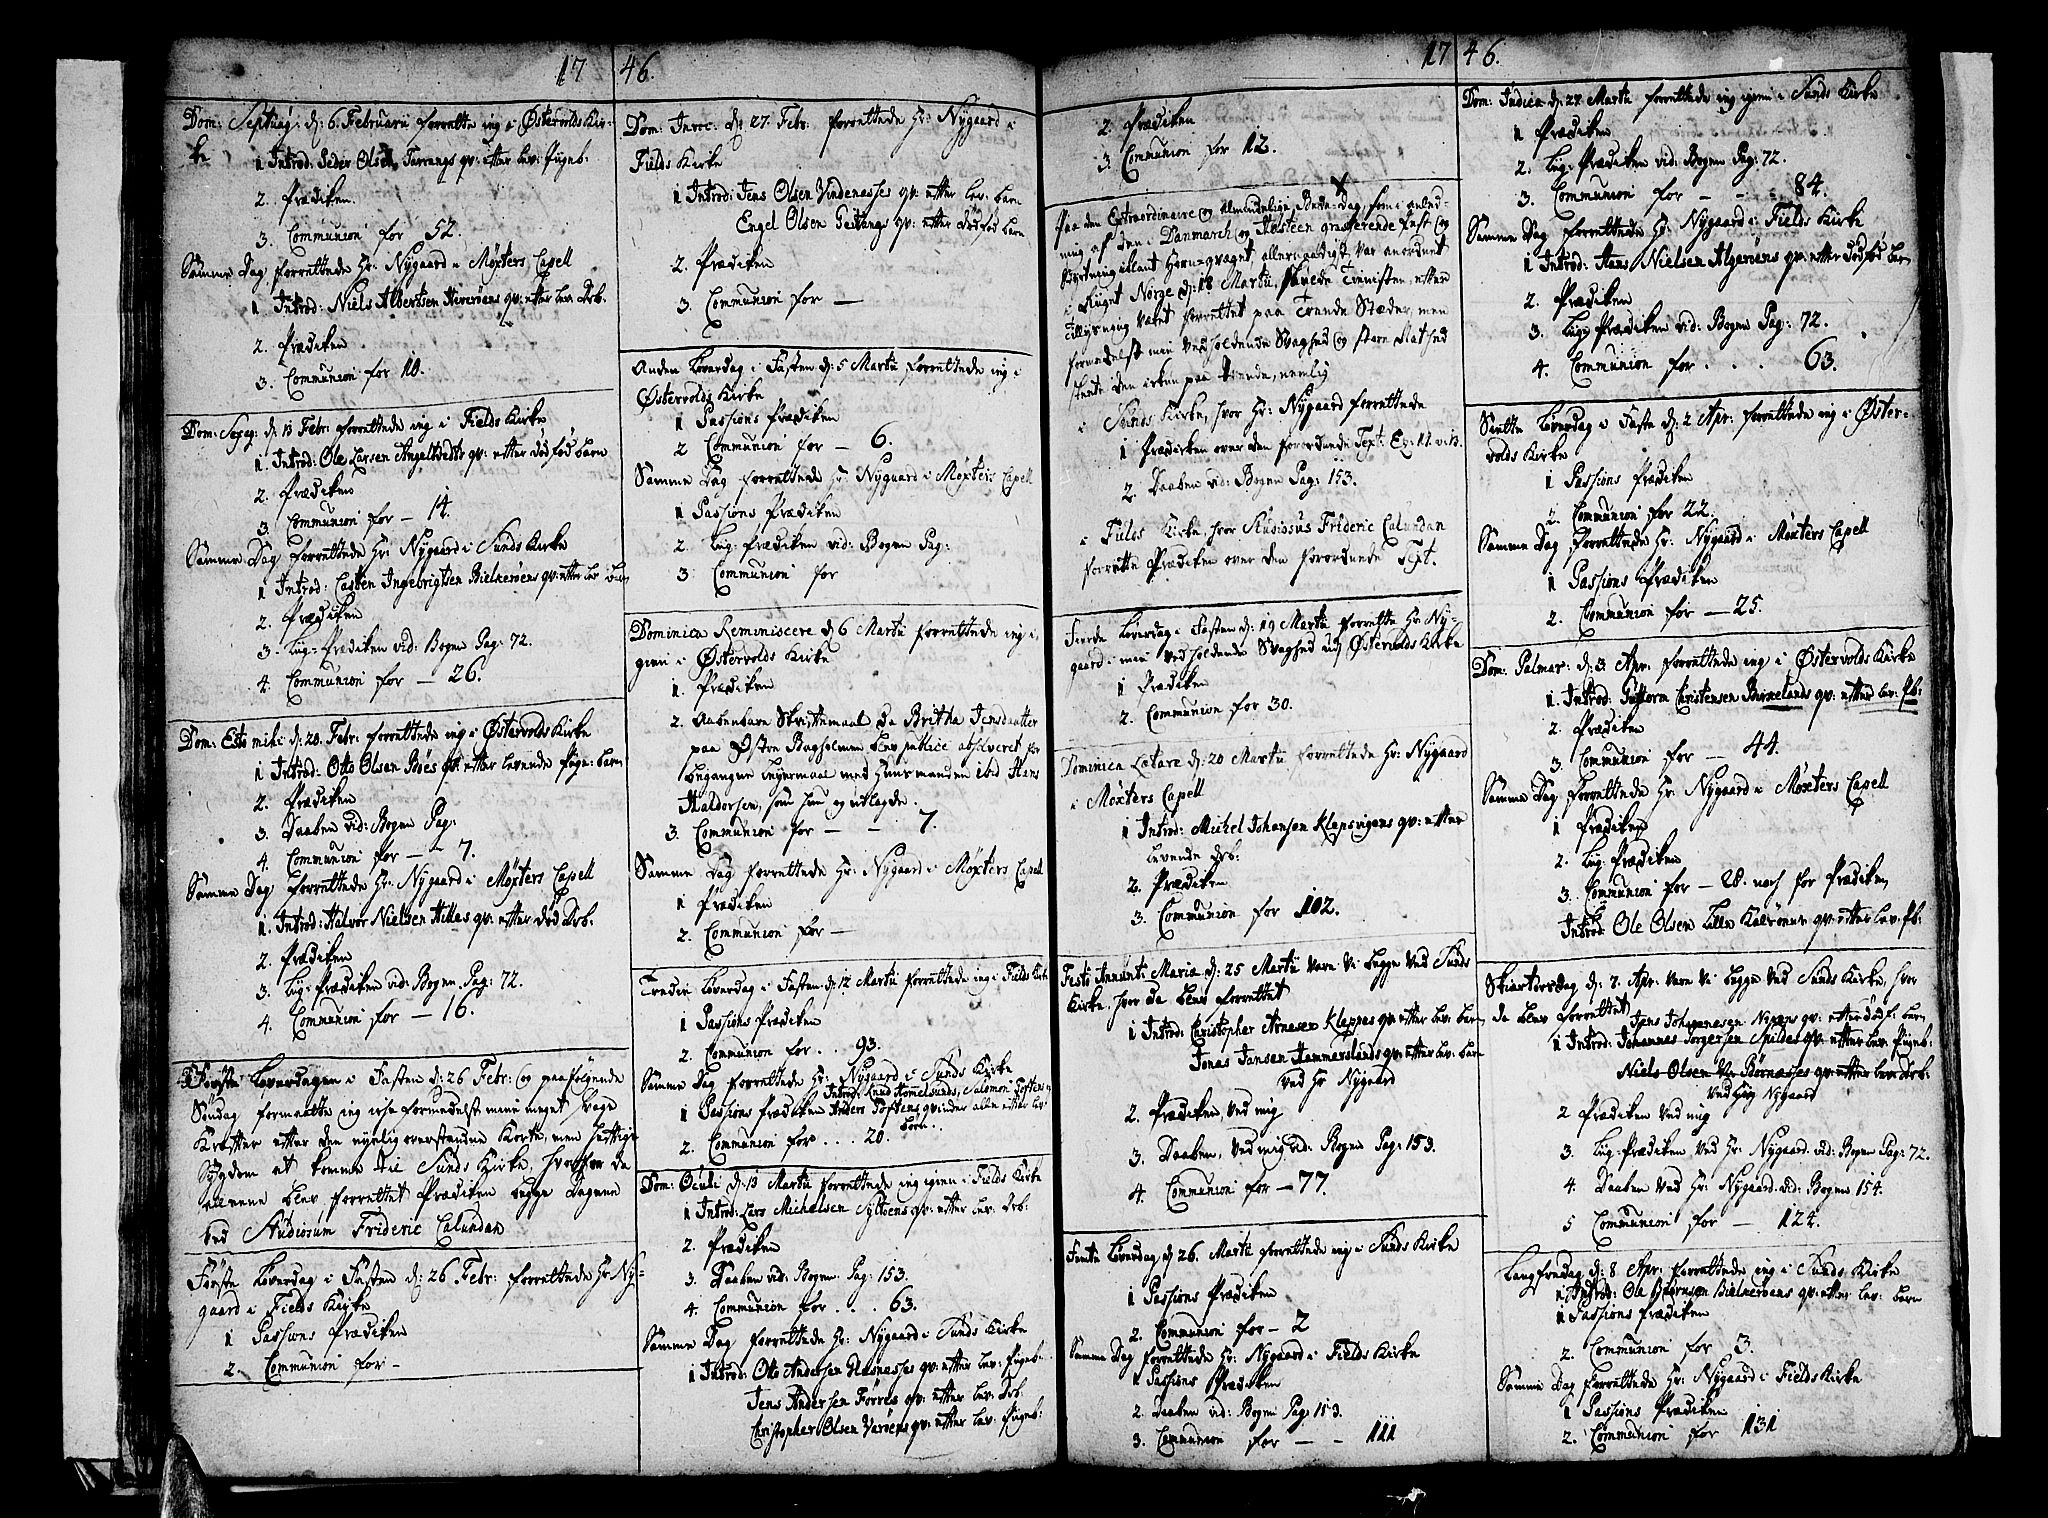 17 46.
Dom: Septuag: d: 6. Februarii forrettede jeg i Østervolds Kir-
ke 1 Introd: Peder Olsen Tarrangs qv: efter lev: Pigeb:
2. Prædiken
3. Communion for 52.
Samme Dag forrettede Hr: Nygaard i Møxters Capell
1 Introd: Niels Albertsen Hevrøens qv: efter lev: Drb.
2. Prædiken
3. Communion for 10.
Dom: Sexag: d: 13 Febr: forrettede jeg i Fields Kirke
1. Introd: Ole Larsen Angeltvedts qv: efter dødfød barn
2. Prædiken
3 Communion for – 14.
Samme Dag forrettede Hr: Nygaard i Sunds Kirke
1 Introd: Casten Ingebrigtsen Bielkerøens qv: efter lev: barn
2. Prædiken
3. Liig-Prædiken vid: Bogen Pag: 72.
4. Communion for – 26.
Dom: Esto mihi d: 20. Febr: forrettede jeg i Østervolds Kirke
1 Introd: Otto Olsen Bøes qv: efter levende Pige-barn
2. Prædiken
3. Daaben vid: Bogen Pag:
4. Communion for – – 7.
Samme Dag forrettede Hr: Nygaard i Møxters Capell
1. Introd: Halvor Nielsen Hilles qv: efter død Drb.
2. Prædiken
3. Liig-Prædiken vid: Bogen Pag: 72.
4. Communion for – 16.
Første Løverdagen i Fasten d: 26 Febr: og paafølgende
Søndag formaatte jeg icke formedelst mine meget svage
Kræfter efter den nyelig overstandne korte, men hæftige
Sygdom at komme til Sunds Kirke, hvorfor da
alleene blev forrettet Prædiken begge Dagene
ved Studiosum Frideric Calundan
Første Løverdag i Fasten d: 26 Febr: forrettede Hr Ny-
gaard i Fields Kirke
1 Passions Prædiken
2. Communion for –
Dom: Invoc: d: 27. Febr: forrettede Hr: Nygaard i
Fields Kirke
1 Introd: Jens Olsen Vindenesses qv: efter lev: barn
Engel Olsen Geitangs qv: efter dødfød barn
2. Prædiken
3. Communion for –
Anden Løverdag i Fasten d: 5 Martii forrettede jeg i
Østervolds Kirke
1 Passions Prædiken
2 Communion for – 6.
Samme Dag forrettede Hr Nygaard i Møxters Capell
1 Passions Prædiken
2. Liig-Prædiken vid: Bogen Pag:
3 Communion for
Dominica Reminiscere d 6 Martii forrettede jeg i-
gien i Østervolds Kirke
1. Prædiken
2. Aabenbare Skriftemaal da Britha Jensdaatter
paa Østre Bagholmen blev publice absolveret for
begangne Leyermaal med Huusmanden ibid Hans
Haldorsen, som hun og utlagde.
3. Communion for – – 7.
Samme Dag forrettede Hr: Nygaard i Møxters Capell
1 Prædiken
2. Communion for –
Tredie Løverdag i Fasten d: 12 Martii forrettede jeg i Fields Kirke
1 Passions Prædiken
2. Communion for . . 93.
Samme Dag forrettede Hr: Nygaard i Sunds Kirke
Introd: Knud Hommelsunds, Salomon Toftens,
1 Passions Prædiken Anders Toftens qvinder alle efter lev:
2. Communion for . . . 20. born . .
Dom: Oculi d: 13 Martii forrettede jeg igien i Fields Kirke
1 Introd: Lars Michelsen Syltøens qv: efter lev: Drb:
2. Prædiken
3. Daaben vid: Bogen Pag: 153.
4. Communion for . . . 63.
Samme Dag forrettede Hr: Nygaard i Sunds Kirke
1 Introd: Otto Andersen Glesnesses qv: efter lev: Pigeb:
Jens Andersen Forres qv: efter lev: Drb:
Christopher Olsen Varøens qv: efter lev: Pigeb:
17 46.
2. Prædiken
3. Communion for 12.
Paa den Extraordinaire og Almindelige Bede-Dag, som i anled-
ning af den i Danmarck og Holsteen grasserende Pest og
Bortdøing iblant Horn-qvæget allernaadigst var anordnet
i Riiget Norge d: 18 Martii, skulde Tienisten, efter
Tillysning været forrettet paa Trende Stæder, men
formedelst min vedholdende Svaghed og store Mathed
skeede den ickun paa Tvende, nemlig
i Sunds Kirke, hvor Hr: Nygaard forrettede
1 Prædicken over den forordnede Text.
2. Daaben vid: Bogen Pag: 153.
i Fields Kirke, hvor Studiosus Frideric Calundan
forrette Prædiken over den forordnede Text.
Fierde Løverdag i Fasten d: 19 Martii forrette Hr Ny-
gaard i min vedholdende Svaghed udj Østervolds Kirke
1 Prædiken
2. Communion for 30.
Dominica Lætare d: 20 Martii forrettede Hr: Nygaard
i Møxters Capell
1 Introd: Michel Johansen Klepsvigens qv: efter
levende Drb:
2. Prædiken
3. Communion for 102.
Festo Annunt: Mariæ d: 25 Martii vare Vi begge ved Sunds
Kirke, hvor da blev forrettet
1 Introd: Christopher Arnesen Kleppes qv: efter lev: barn
Jonas Jansen Hammerslands qv: efter lev: barn
ved Hr Nygaard
2. Prædiken, ved mig
3. Daaben, ved mig vid: Bogen Pag: 153.
4. Communion for – 77.
Femte Løverdag d 26. Martii forrettede jeg i Sunds Kirke
1 Passions Prædiken
2. Communion for – 2
Samme Dag forrettede Hr: Nygaard i Fields Kirke
1 Passions Prædiken
2. Daaben vid: Bogen Pag: 153.
3. Communion for – – 111
Dom: Judica d: 27. Martii forrettede jeg igien i Sunds Kirke
1 Prædiken
2. Liig-Prædiken vid: Bogen Pag: 72.
3. Communion for – – 84.
Samme Dag forrettede Hr Nygaard i Fields Kirke
1 Introd: Hans Nielsen Algerøens qv: efter dødfød barn
2. Prædiken
3. Liig-Prædiken vid: Bogen Pag: 72.
4. Communion for . . . 63.
Siette Løverdag i Faste d: 2 Apr: forrettede jeg i Øster-
volds Kirke
1 Passions Prædiken
2. Communion for 22.
Samme Dag forrettede Hr: Nygaard i Møxters Capell
1 Passions Prædiken
2. Communion for – 25.
Dom: Palmar: d: 3. Apr: forrettede jeg i Østervolds Kirke
1. Introd: Guttorm Christensen Birkelands qv: efter lev: Pb:
2. Prædiken
3. Communion for – 44.
Samme Dag forrettede Hr: Nygaard i Møxters Capell
1 Prædiken
2. Liig-Prædiken
3. Communion for – 28. noch for Prædiken,
Introd: Ole Olsen Lille Kalvøens qv: efter lev: Pb:
Skiertorsdag d: 7. Apr: vare Vi begge ved Sunds Kirke, hvor
da blev forrettet Jens Johannesen Nipens qv: efter dødf: barn
1 Introd: Johannes Jørgensen Spildes qv: efter lev: Pigeb:
Niels Olsen Børnesses qv: efter lev: Drb:
ved Hr: Nygaard
2 Prædiken ved mig
3. Liig-Prædiken ved Hr: Nygaard vid: Bogen Pag: 72.
4. Daaben ved Hr: Nygaard vid: Bogen 154.
5 Communion for – 124.
Langfredag d: 8. Apr: forrettede jeg i Sunds Kirke
1 Introd: Ole Biørnsen Bielkerøens qv: efter lev: barn
1 Passions Prædiken
2. Communion for 3.
Samme Dag forrettede Hr: Nygaard i Fields Kirke
1 Passions Prædiken
2. Communion for 131